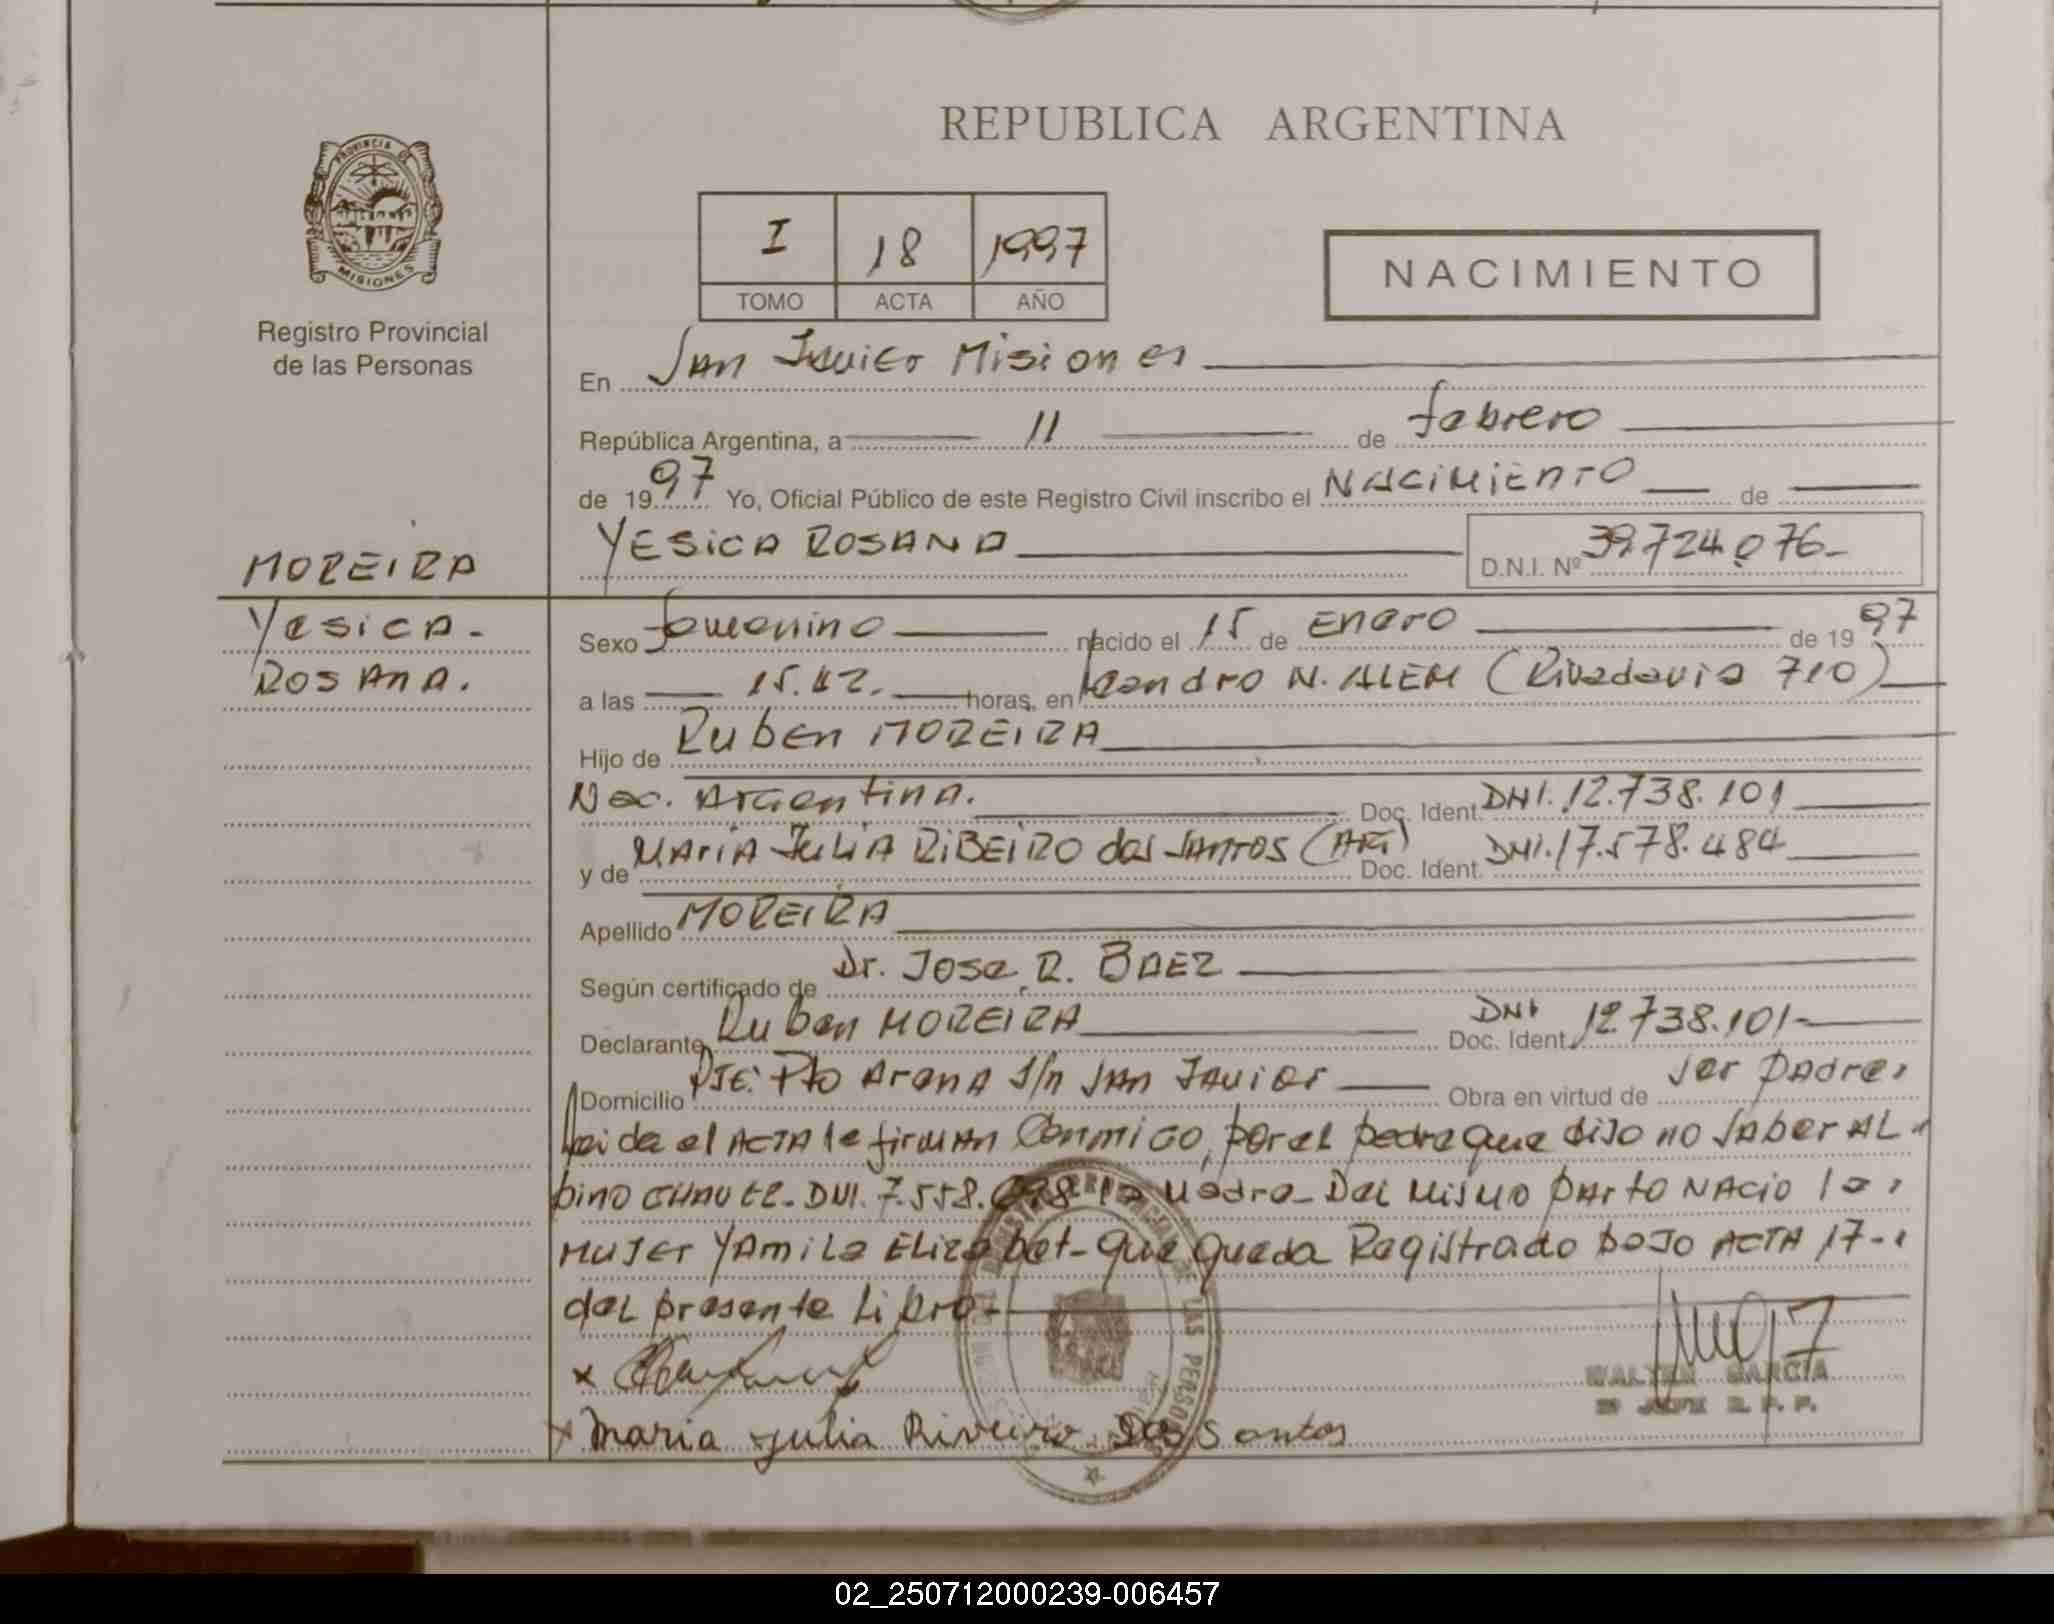 REPUBLICA ARGENTINA
PROVINCIA DE
MISIONES
Registro Provincial
de las Personas
I 18 1997
TOMO ACTA AÑO
NACIMIENTO
En San Javier Misiones
República Argentina, a 11 de febrero
de 1997 Yo, Oficial Público de este Registro Civil inscribo el NACIMIENTO de
YESICA ROSANA D.N.I. Nº 39.724.076-
MOREIRA
Yesica-
ROSANA.
Sexo femenino nacido el 15 de ENERO de 1997
a las 15.12. horas, en Leandro N. ALEM (Rivadavia 710)
Hijo de Ruben MOREIRA
Nac. Argentina. Doc. Ident. DNI. 12.738.101
y de MARIA JULIA RIBEIRO dos SANTOS (ARG) Doc. Ident. DNI. 17.578.484
Apellido MOREIRA
Según certificado de Dr. Jose R. BAEZ
Declarante Ruben MOREIRA Doc. Ident. DNI 12.738.101-
Domicilio Pje: Pto Arana S/n San Javier Obra en virtud de ser padre,
leida el ACTA la firman Conmigo, por el padre que dijo no saber AL-
bino DNI. 7.558. la Madre- Del mismo parto NACIO la
MUJER YAMILA ELIZABET- que queda Registrado bajo ACTA 17-
del presente Libro-
x
x Maria Julia Riveiro Dos Santos
WALTER GARCIA
JEFE R. P. P.
02_250712000239-006457